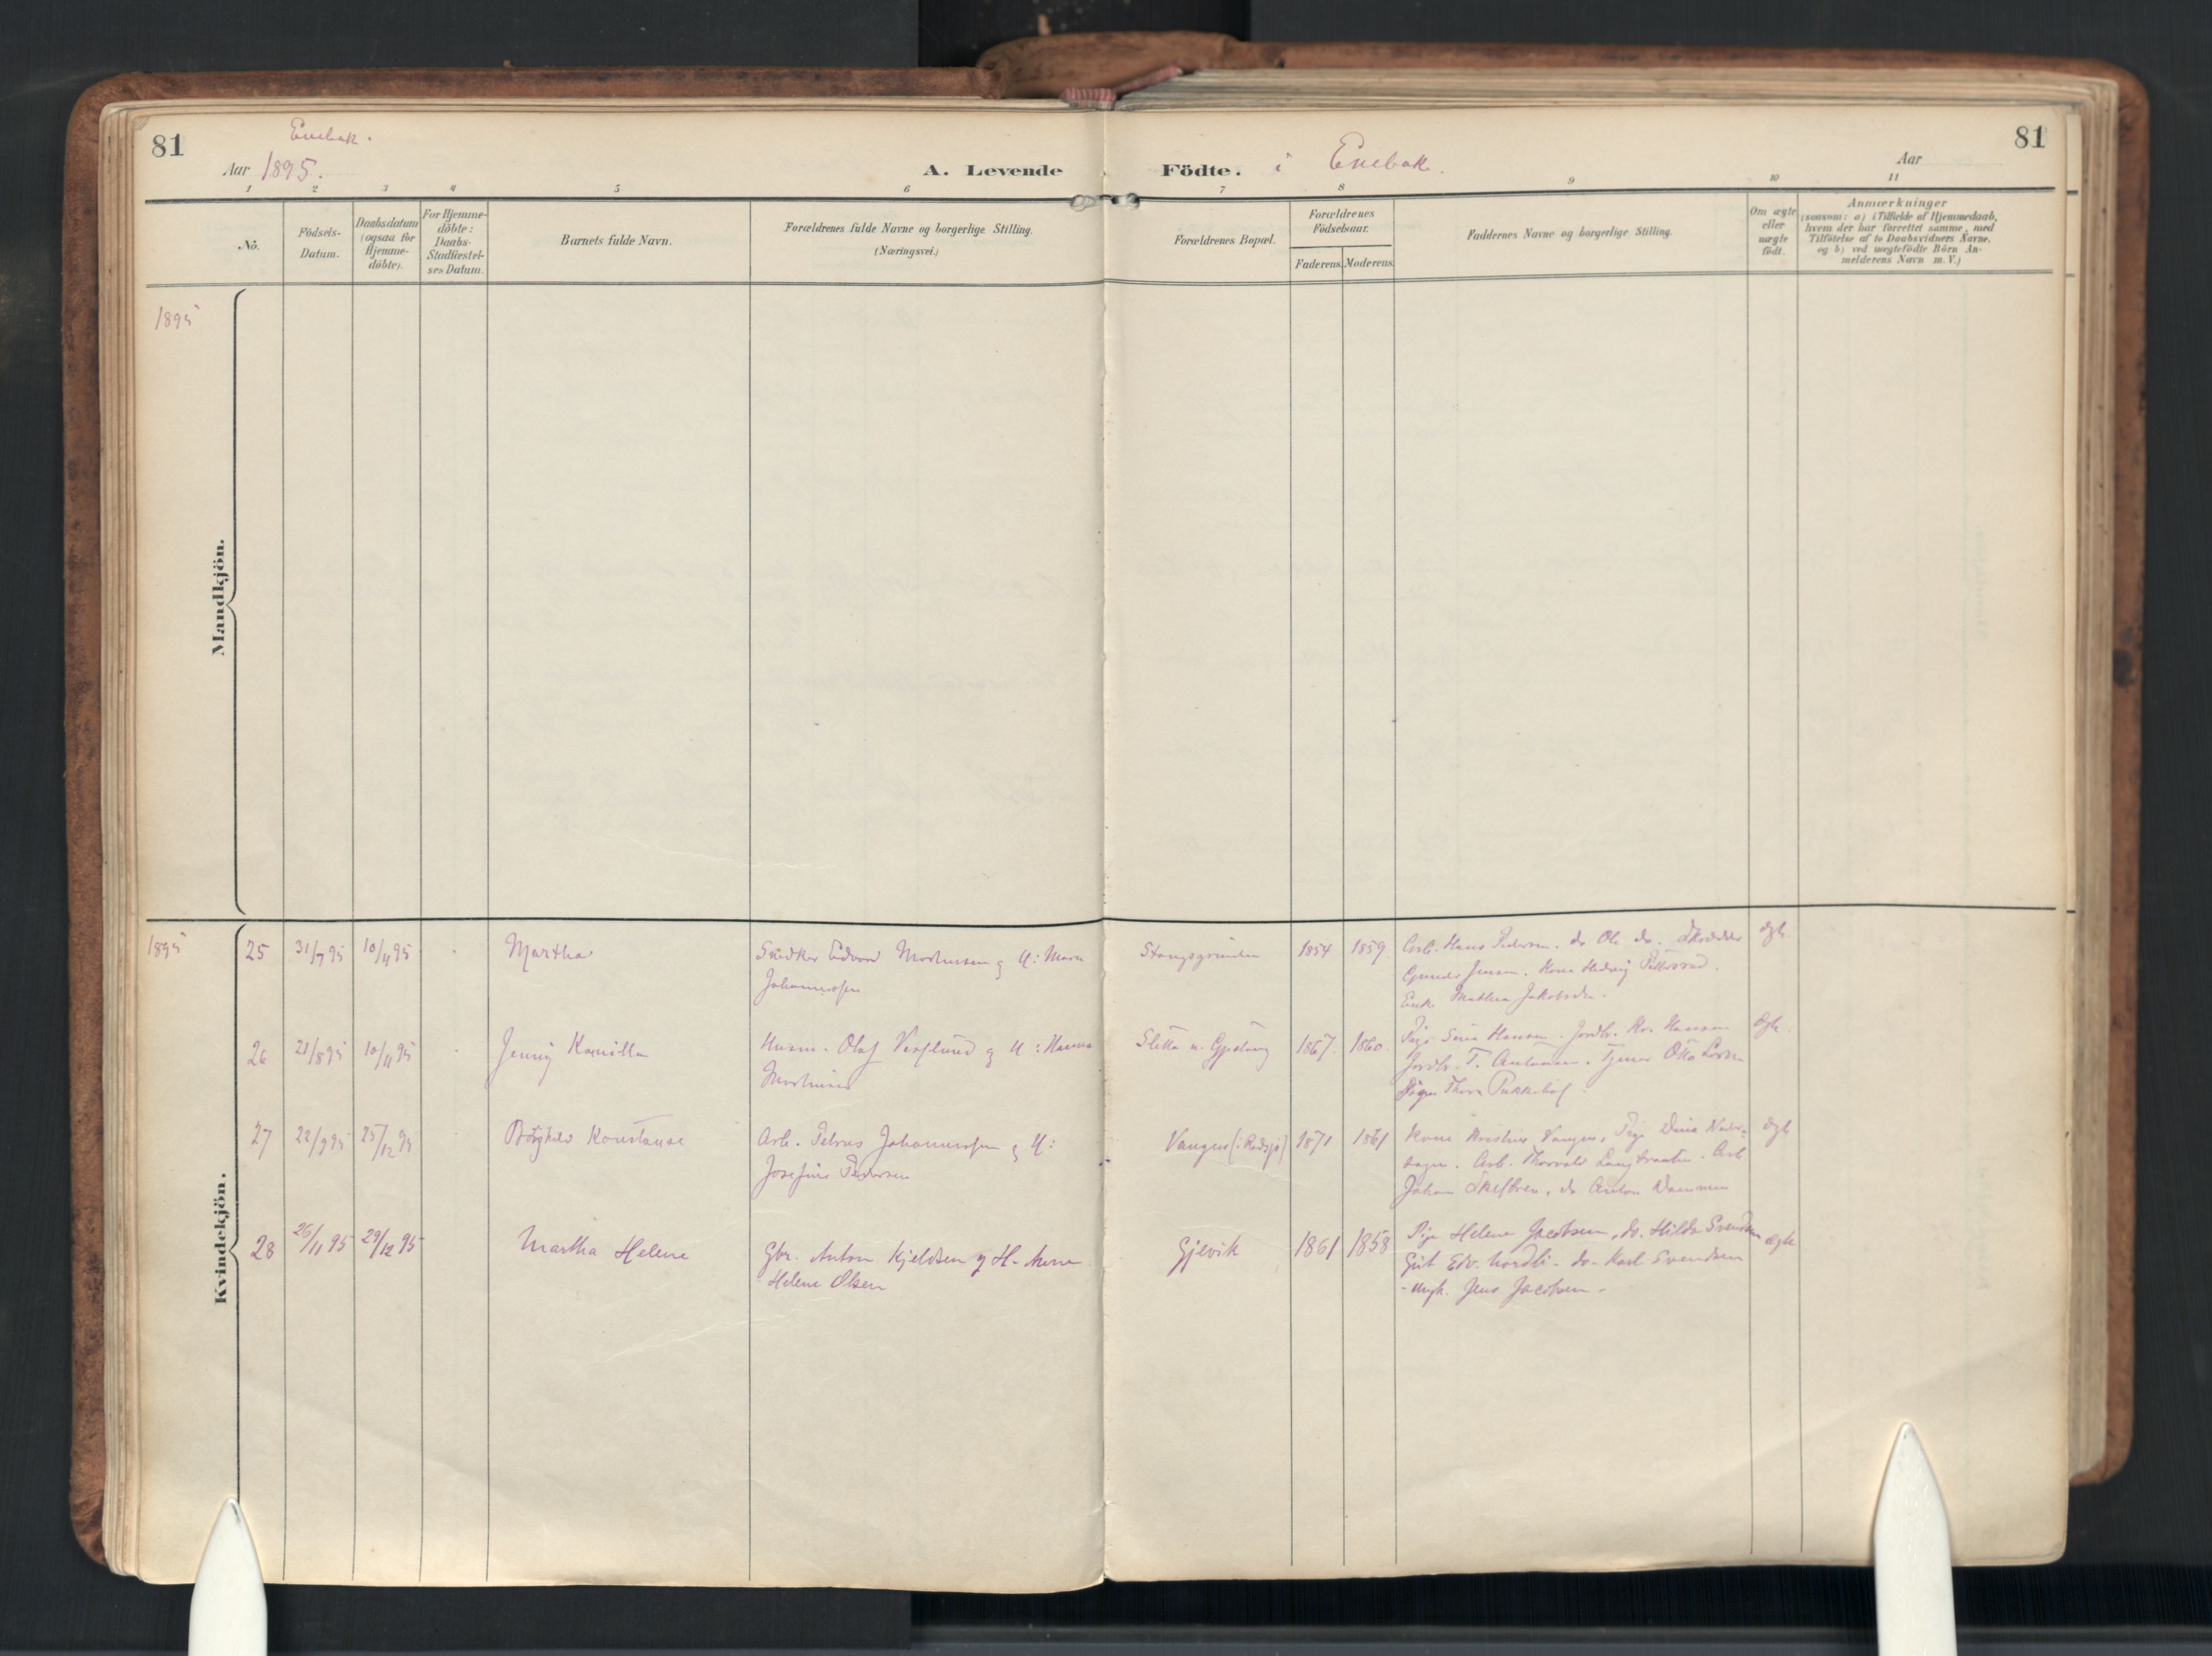 81
Enebak.
Aar 1895.
A. Levende
Födte. i Enebak.
Aar
81
1 2 3 4 5 6 7 8 9 10 11
No.
Födsels-
Datum.
Daabsdatum
(ogsaa for
Hjemme-
döbte).
For Hjemme-
döbte:
Daabs-
Stadfæstel-
ses Datum.
Barnets fulde Navn.
Forældrenes fulde Navne og borgerlige Stilling.
(Næringsvei.)
Forældrenes Bopæl.
Forældrenes
Födselsaar.
Faderens. Moderens.
Faddernes Navne og borgerlige Stilling.
Om ægte
eller
uægte
født.
Anmærkninger
(saasom: a) i Tilfælde af Hjemmedaab,
hvem der har forrettet samme, med
Tilföielse af to Daabsvidners Navne,
og b) ved uægtefödte Börn An-
melderens Navn m. V.)
1895
Mandkjön.
1895
Kvindekjön.
25 31/7 95 10/11 95 Martha
Snedker Edvard Mortensen og H: Maren
Johannessen
1854 1859
Arb. Hans Pedersen. do Ole do. Skrædder
Gunder Jensen. Kone Hedvig
Enke Mathea Jakobsen.
ægte
26 21/8 95 10/11 95 Jenny Kamilla
Husm. Olaf Vestlund og H: Hanna
Sletta u. Gjestang 1867. 1860
Pige Hansen. Jordbr. Kr. Hansen
Jordbr. T. Antonsen. Tjener Otto Larsen
Pige Thora
ægte.
27 22/9 95 25/12 95 Borghild Konstanse
Arb. Petrus Johannessen og H:
Josefine Pedersen
Vangen (i Rødsjø) 1871 1861
Kone Kristine Vangen, Pige
Arb. Thorvald Langbraaten. Arb
Johan do Anton Dammen
ægte
28 26/11 95 29/12 95 Martha Helene
Gbr. Anton Kjeldsen og H. Anne
Helene Olsen
Gjevik 1861 1858
Pige Helene Jacobsen, do. Hilda Svendsen
Gut Edv. Nordli - do - Karl Svendsen
- Ungk. Jens Jacobsen -
ægte